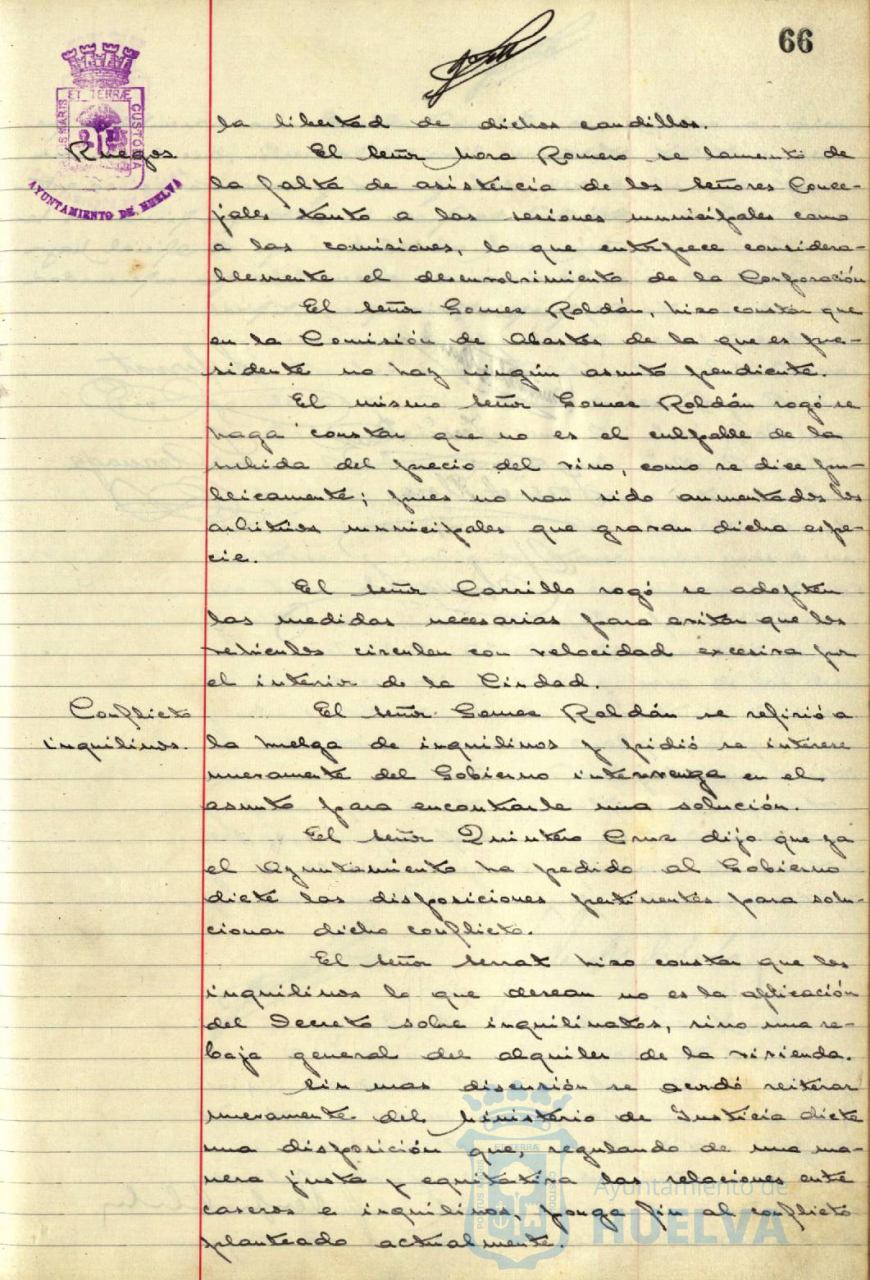 66
la libertad de dichos caudillos.
Ruegos
El señor Mora Romero se lamentó de
la falta de asistencia de los señores Conce-
jales tanto a las sesiones municipales como
a las comisiones, lo que entorpece considera-
blemente el desenvolvimiento de la Corporación
El señor Gomez Roldán, hizo constar que
en la Comisión de Abastos de la que es pre-
sidente no hay ningún asunto pendiente.
El mismo señor Gomez Roldán rogó se
haga constar que no es el culpable de la
subida del precio del vino, como se dice pu-
blicamente; pues no han sido aumentados los
arbitrios municipales que gravan dicha espe-
cie.
El señor Carrillo rogó se adopten
las medidas necesarias para evitar que los
vehiculos circulen con velocidad excesiva por
el interior de la Ciudad.
Conflicto
inquilinos.
El señor Gomez Roldán se refirió a
la huelga de inquilinos y pidió se interese
nuevamente del Gobierno intervenga en el
asunto para encontrarle una solución.
El señor Quintero Cruz dijo que ya
el Ayuntamiento ha pedido al Gobierno
dicte las disposiciones pertinentes para solu-
cionar dicho conflicto.
El señor Serrat hizo constar que los
inquilinos lo que desean no es la aplicación
del Decreto sobre inquilinatos, sino una re-
baja general del alquiler de la vivienda.
Sin mas discusión se acordó reiterar
nuevamente del Ministerio de Justicia dicte
una disposición que, regulando de una ma-
nera justa y equitativa las relaciones entre
caseros e inquilinos, ponga fin al conflicto
planteado actualmente.
ET TERRÆ
CUSTODIA
AYUNTAMIENTO DE HUELVA
Ayuntamiento de
HUELVA